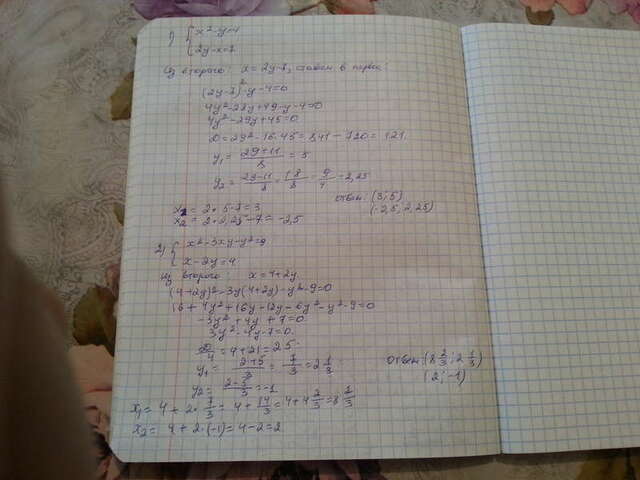 1) { x² - y = 4
2y - x = 7
Из второго: x = 2y - 7, ставим в первое:
(2y - 7)² - y - 4 = 0
4y² - 28y + 49 - y - 4 = 0
4y² - 29y + 45 = 0
D = 29² - 16·45 = 841 - 720 = 121
y₁ = (29 + 11)/8 = 5
y₂ = (29 - 11)/8 = 18/8 = 9/4 = 2,25
Ответ: (3; 5)
(-2,5; 2,25)
x₁ = 2·5 - 7 = 3
x₂ = 2·2,25 - 7 = -2,5
2) { x² - 3xy - y² = 9
x - 2y = 4
Из второго: x = 4 + 2y
(4 + 2y)² - 3y(4 + 2y) - y² - 9 = 0
16 + 4y² + 16y - 12y - 6y² - y² - 9 = 0
-3y² + 4y + 7 = 0
3y² - 4y - 7 = 0
D/4 = 4 + 21 = 25
y₁ = (2 + 5)/3 = 7/3 = 2 1/3
Ответ: (8 2/3; 2 1/3)
(2; -1)
y₂ = (2 - 5)/3 = -1
x₁ = 4 + 2·7/3 = 4 + 14/3 = 4 + 4 2/3 = 8 2/3
x₂ = 4 + 2·(-1) = 4 - 2 = 2